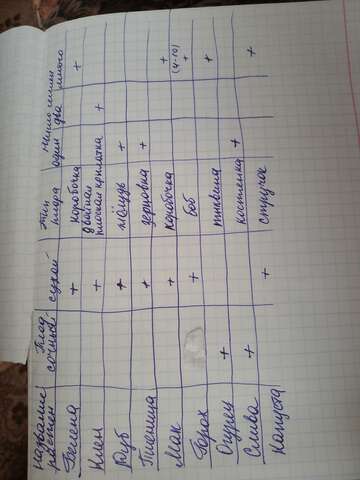 Название Плод Тип число семян
растен сочный сухой плода один два много
Белена + коробочка +
двойная
Клен + плоская крылатка +
Дуб + жёлудь +
Пшеница + зерновка +
Мак + коробочка +
Горох + боб (4-10) +
Огурец + тыквина +
Слива + костянка +
Капуста + стручок +